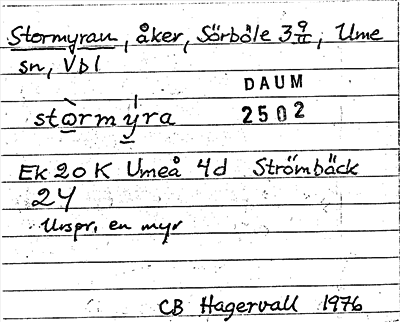 Stormyran, åker, Sörböle 3 9/II, Ume
sn, Vbl
DAUM
2502
stòrmýra
Ek 20 K Umeå 4d Strömbäck
24
Urspr. en myr
CB Hagervall 1976